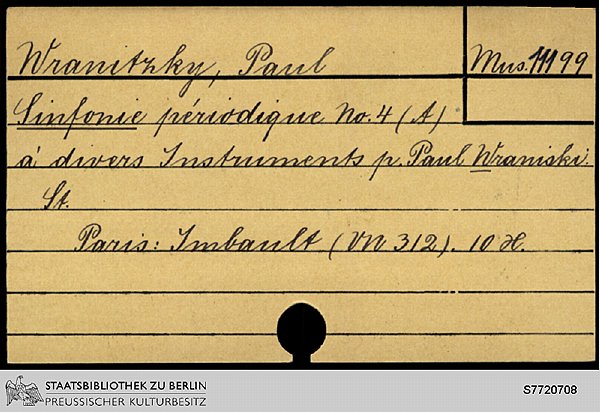 Wranitzky, Paul
Mus. 11199
Sinfonie périodique No. 4 (A)
à divers Instruments p. Paul Wraniski.
St.
Paris: Imbault (VN 312). 10 H.
STAATSBIBLIOTHEK ZU BERLIN
PREUSSISCHER KULTURBESITZ
S7720708